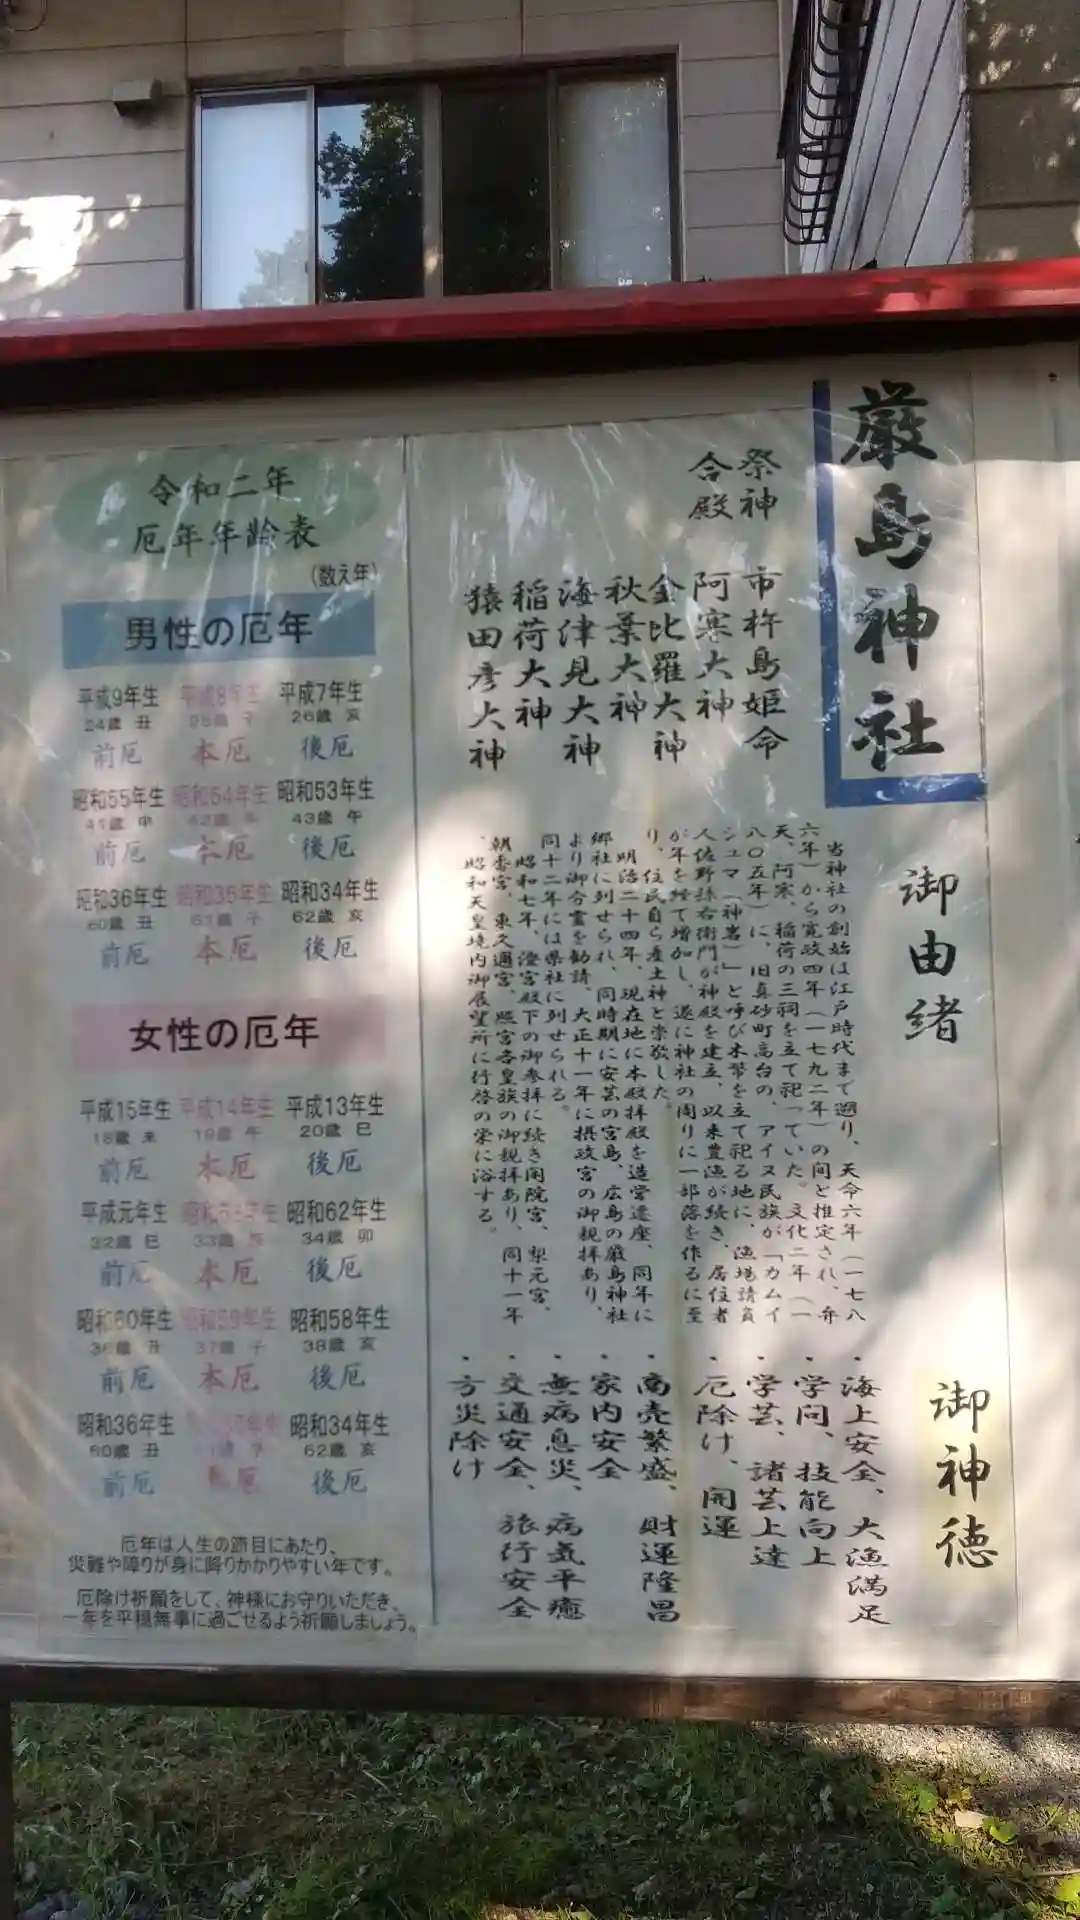 厳島神社
祭神 市杵島姫命
合殿 阿寒大神
金比羅大神
秋葉大神
海津見大神
稲荷大神
猿田彦大神
御由緒
当神社の創始は江戸時代まで遡り、天命六年(一七八
六年)から寛政四年(一七九二年)の間と推定され、弁
天、阿寒、稲荷の三祠を立て祀っていた。文化二年(一
八〇五年)に、旧真砂町高台の、アイヌ民族が「カムイ
シュマ(神岩)」と呼び木幣を立て祀る地に、漁場請負
人佐野孫右衛門が神殿を建立、以来豊漁が続き、居住者
が年を経て増加し、遂に神社の周りに一部落を作るに至
り、住民自ら産土神と崇敬した。
明治二十四年、現在地に本殿拝殿を造営遷座、同年に
郷社に列せられ、同時期に安芸の宮島、広島の厳島神社
より御分霊を勧請、大正十一年に摂政宮の御親拝あり、
同十二年には県社に列せられる。
昭和七年、澄宮殿下の御参拝に続き閑院宮、梨元宮、
朝香宮、東久邇宮、照宮各皇族の御親拝あり、同十一年
、昭和天皇境内御展望所に行啓の栄に浴する。
御神徳
・海上安全、大漁満足
・学問、技能向上
・学芸、諸芸上達
・厄除け、開運
・商売繁盛、財運隆昌
・家内安全
・無病息災、病気平癒
・交通安全、旅行安全
・方災除け
令和二年
厄年年齢表
(数え年)
男性の厄年
平成9年生 平成8年生 平成7年生
24歳 丑 25歳 子 26歳 亥
前厄 本厄 後厄
昭和55年生 昭和54年生 昭和53年生
41歳 申 42歳 未 43歳 午
前厄 本厄 後厄
昭和36年生 昭和35年生 昭和34年生
60歳 丑 61歳 子 62歳 亥
前厄 本厄 後厄
女性の厄年
平成15年生 平成14年生 平成13年生
18歳 未 19歳 午 20歳 巳
前厄 本厄 後厄
平成元年生 昭和63年生 昭和62年生
32歳 巳 33歳 辰 34歳 卯
前厄 本厄 後厄
昭和60年生 昭和59年生 昭和58年生
36歳 丑 37歳 子 38歳 亥
前厄 本厄 後厄
昭和36年生 年生 昭和34年生
60歳 丑 歳 子 62歳 亥
前厄 本厄 後厄
厄年は人生の節目にあたり、
災難や障りが身に降りかかりやすい年です。
厄除け祈願をして、神様にお守りいただき、
一年を平穏無事に過ごせるよう祈願しましょう。